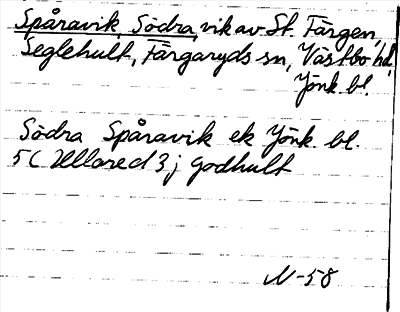 Spåravik, Södra, vik av St. Färgen,
Seglehult, Färgaryds sn, Västbo hd,
Jönk. bl.
Södra Spåravik ek Jönk. bl.
5 C Ullared 3 j Godhult
N-58